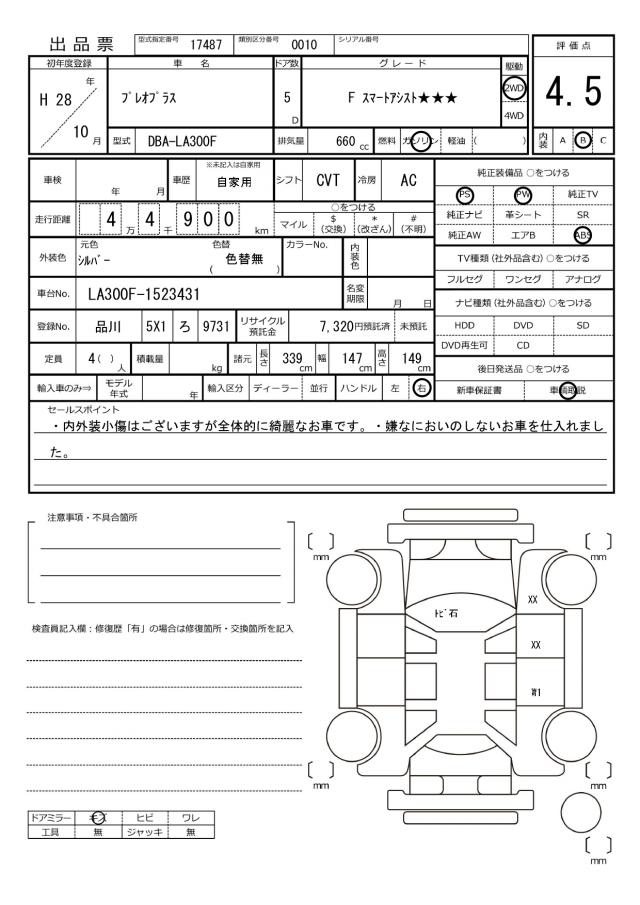 出品票 型式指定番号 17487 類別区分番号 0010 シリアル番号
評価点
4.5
内装 A B C
初年度登録 車名 ドア数 グレード 駆動
H 28 年 10 月
プレオプラス 5 D F スマートアシスト★★★ 2WD
4WD
型式 DBA-LA300F 排気量 660 cc 燃料 ガソリン 軽油 ( )
車検 年 月 車歴 ※未記入は自家用 自家用 シフト CVT 冷房 AC
走行距離 4 万 4 千 9 0 0 km
○をつける
マイル $ (交換) * (改ざん) # (不明)
外装色 元色 シルバー 色替 ( 色替無 ) カラーNo. 内装色
車台No. LA300F-1523431 名変期限 月 日
登録No. 品川 5X1 ろ 9731 リサイクル預託金 7,320円預託済 未預託
定員 4( ) 人 積載量 kg 諸元 長さ 339 cm 幅 147 cm 高さ 149 cm
輸入車のみ⇒ モデル年式 年 輸入区分 ディーラー 並行 ハンドル 左 右
純正装備品 ○をつける
PS PW 純正TV
純正ナビ 革シート SR
純正AW エアB ABS
TV種類 (社外品含む) ○をつける
フルセグ ワンセグ アナログ
ナビ種類 (社外品含む) ○をつける
HDD DVD SD
DVD再生可 CD
後日発送品 ○をつける
新車保証書 車輌取説
セールスポイント
・内外装小傷はございますが全体的に綺麗なお車です。・嫌なにおいのしないお車を仕入れまし
た。
注意事項・不具合箇所
検査員記入欄：修復歴「有」の場合は修復箇所・交換箇所を記入
[ ] mm
[ ] mm
トビ石
XX
XX
[ ] mm
[ ] mm
[ ] mm
ドアミラー キズ ヒビ ワレ
工具 無 ジャッキ 無